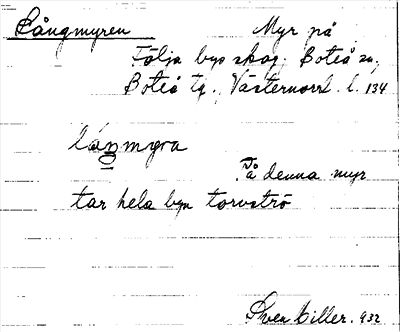 Långmyren Myr på
Följa bys skog. Boteå sn,
Boteå tg., Västernorrl. l. 134
låŋmyra
På denna myr
tar hela byn torvströ
Sven Ciller. 932